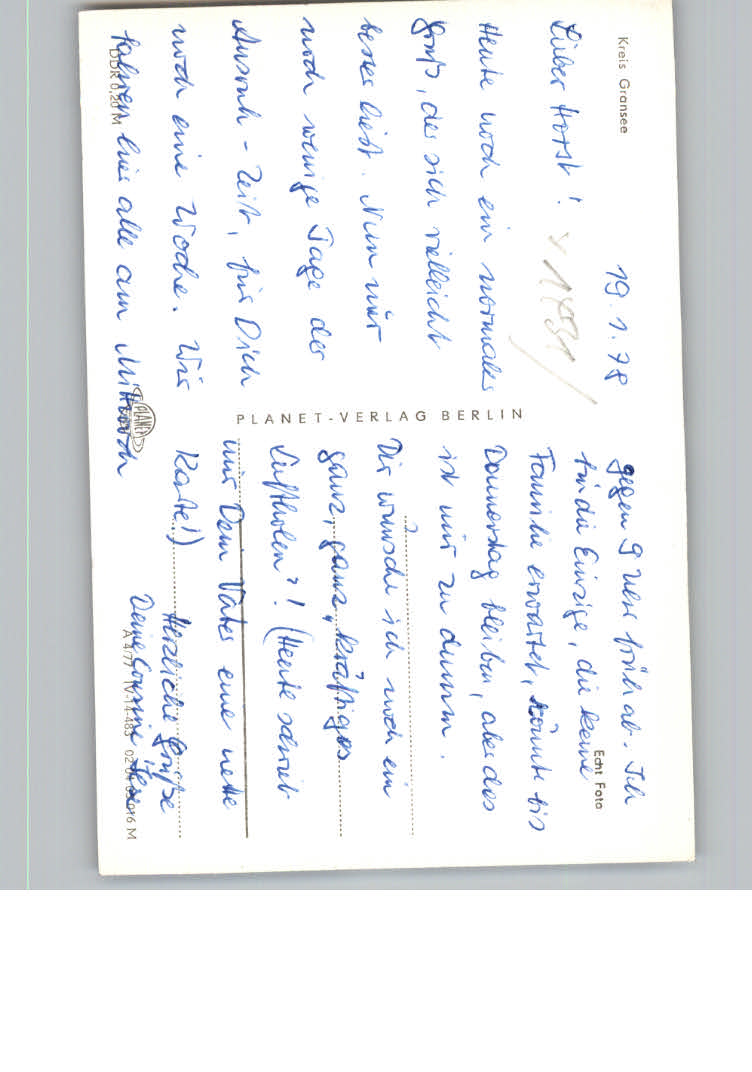 Kreis Gransee
19.1.78
Lieber Horst!
x 1791/
Heute noch ein normaler
Gruß, der sich vielleicht
besser liest. Nun nur
noch wenige Tage der
Ausruh-Zeit, für Dich
noch eine Woche. Wir
fahren hier alle am Mittwoch
DDR 0,20 M
PLANET
PLANET-VERLAG BERLIN
gegen 9 Uhr früh ab. Ich
bin die Einzige, die keine
Echt Foto
Familie erwartet, könnte bis
Donnerstag bleiben, aber das
ist mir zu dumm.
Dir wünsche ich noch ein
ganz, ganz kräftiges
Luftholen?! (Heute schrieb
mir Dein Vater eine nette
Karte!)
Herzliche Grüße
Deine Cousine
A 4/77 IV-14-483